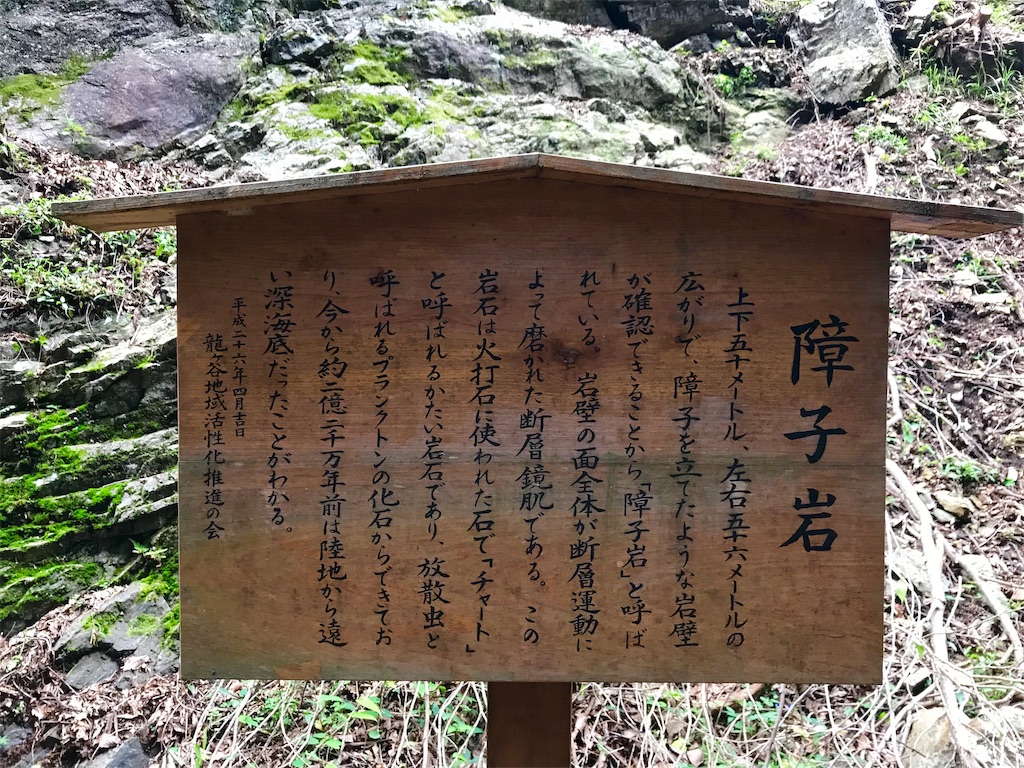 障子岩
上下五十メートル、左右五十六メートルの
広がりで、障子を立てたような岩壁
が確認できることから「障子岩」と呼ば
れている。岩壁の面全体が断層運動に
よって磨かれた断層鏡肌である。この
岩石は火打石に使われた石で「チャート」
と呼ばれるかたい岩石であり、放散虫と
呼ばれるプランクトンの化石からできてお
り、今から約二億二千万年前は陸地から遠
い深海底だったことがわかる。
平成二十六年四月吉日
龍ヶ谷地域活性化推進の会